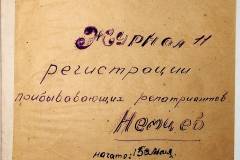 Журнал 11
регистрации
прибывавающих репатриантов
Немцев
начато: